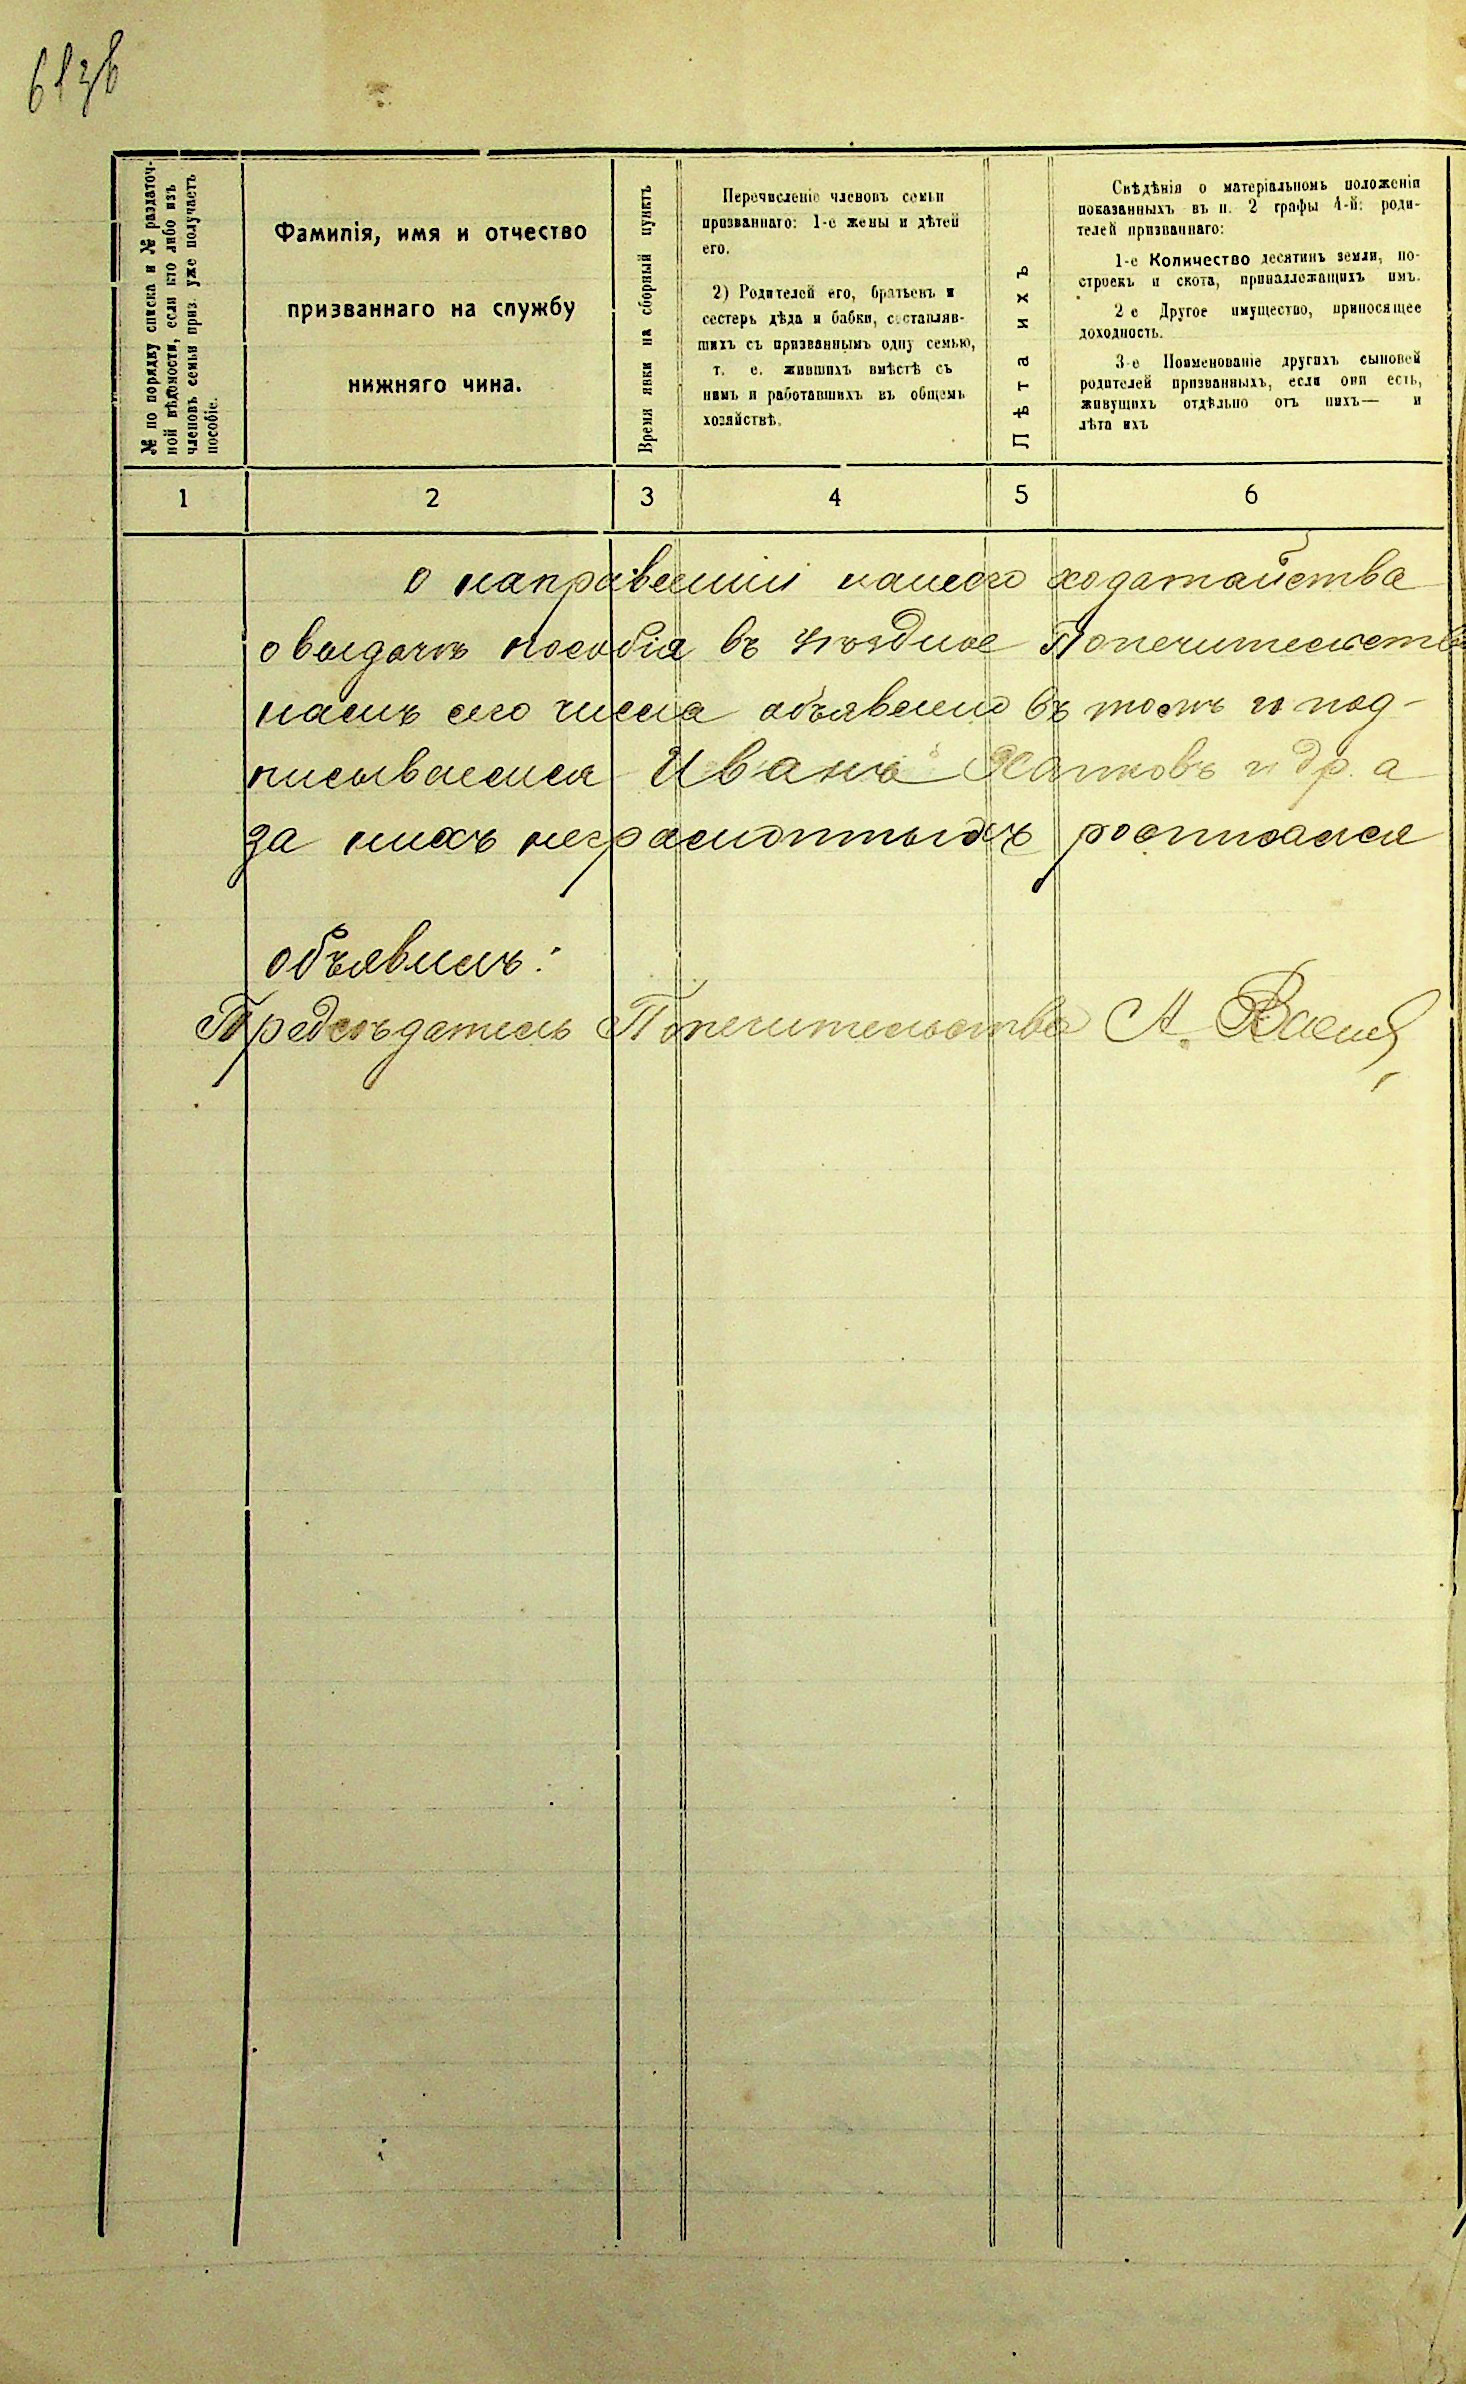 № по порядку списка и № раздаточ-
ной вѣдомости, если кто либо изъ
членовъ семьи приз. уже получаетъ
пособіе.
Фамилія, имя и отчество
призваннаго на службу
нижняго чина.
Время явки на сборный пунктъ
Перечисленіе членовъ семьи
призваннаго: 1-е жены и дѣтей
его.
2) Родителей его, братьевъ и
сестеръ дѣда и бабки, составляв-
шихъ съ призваннымъ одну семью,
т. е. жившихъ вмѣстѣ съ
нимъ и работавшихъ въ общемъ
хозяйствѣ.
Лѣта ихъ
Свѣдѣнія о матеріальномъ положеніи
показанныхъ въ п. 2 графы 4-й: роди-
телей призваннаго:
1-е Количество десятинъ земли, по-
строекъ и скота, принадлежащихъ имъ.
2 е Другое имущество, приносящее
доходность.
3-е Поименованіе другихъ сыновей
родителей призванныхъ, если они есть,
живущихъ отдѣльно отъ нихъ— и
лѣта ихъ
1 2 3 4 5 6
О направленіи нашего ходатайства
о выдачѣ пособія въ уѣздное Попечительство
намъ сего числа объявлено въ томъ и под-
писываемся Иванъ и др. а
за нихъ неграмотныхъ росписался
объявилъ:
Предсѣдатель Попечительства А.